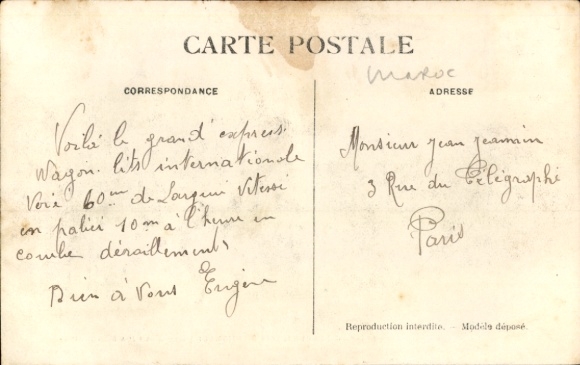 CARTE POSTALE
maroc
CORRESPONDANCE
Voilà le grand express
Wagon-lits internationale
Voie 60 m de Largeur Vitesse
en palier 10 m à l'heure en
courbe déraillements
Bien à vous Eugène
ADRESSE
Monsieur Jean Jeannin
3 Rue du Télégraphe
Paris
Reproduction interdite. - Modèle déposé.